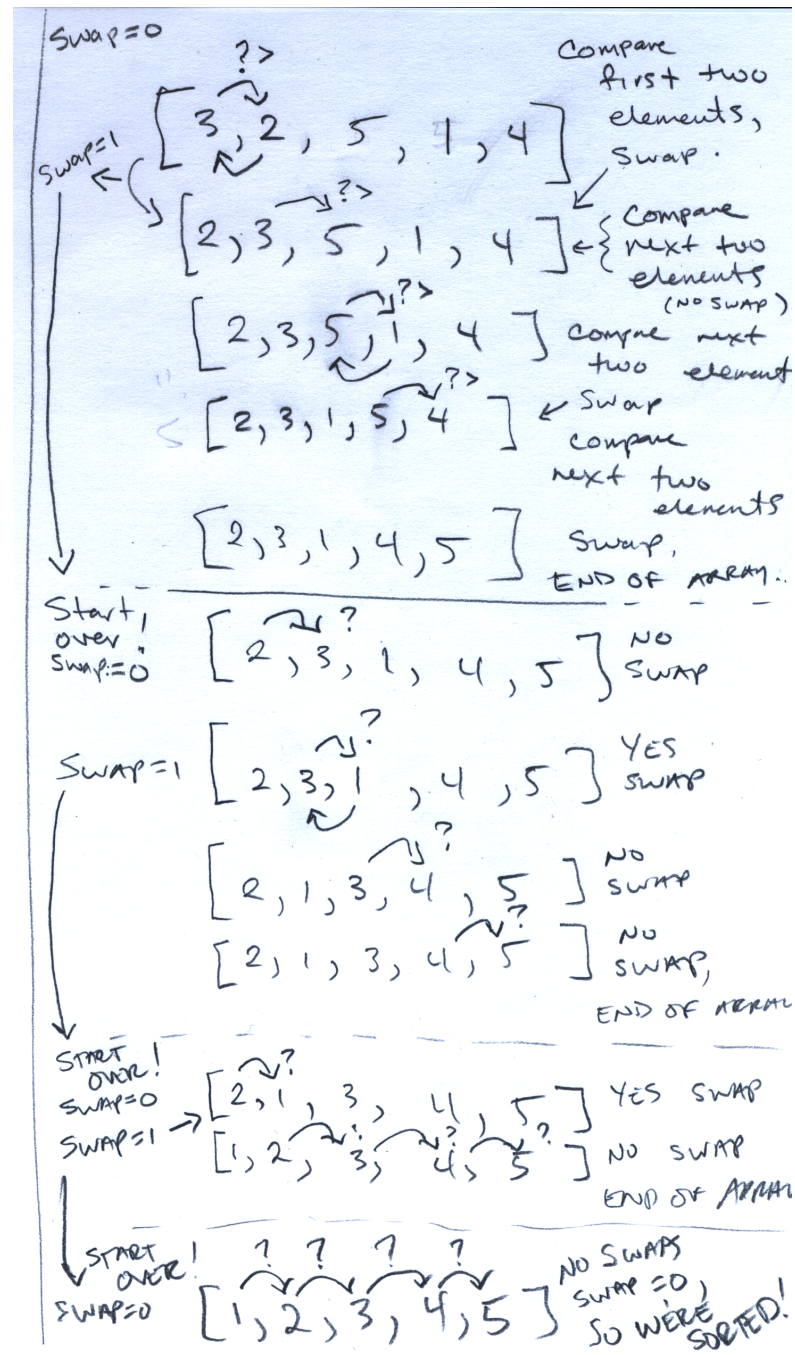 Swap=0
? >
Compare
first two
elements,
Swap.
[3, 2, 5, 1, 4]
Swap=1
? >
[2, 3, 5, 1, 4]
Compare
next two
elements
(NO SWAP)
? >
[2, 3, 5, 1, 4]
compare next
two element
? >
[2, 3, 1, 5, 4]
Swap
compare
next two
elements
[2, 3, 1, 4, 5]
Swap,
END OF ARRAY..
Start
over!
Swap:=0
?
[2, 3, 1, 4, 5]
NO
SWAP
SWAP=1
?
[2, 3, 1, 4, 5]
YES
SWAP
?
[2, 1, 3, 4, 5]
NO
SWAP
?
[2, 1, 3, 4, 5]
NO
SWAP,
END OF ARRAY
START
OVER!
SWAP=0
SWAP=1
?
[2, 1, 3, 4, 5]
YES SWAP
? ? ?
[1, 2, 3, 4, 5]
NO SWAP
END OF ARRAY
START
OVER!
SWAP=0
? ? ? ?
[1, 2, 3, 4, 5]
NO SWAPS
SWAP=0,
SO WE'RE
SORTED!